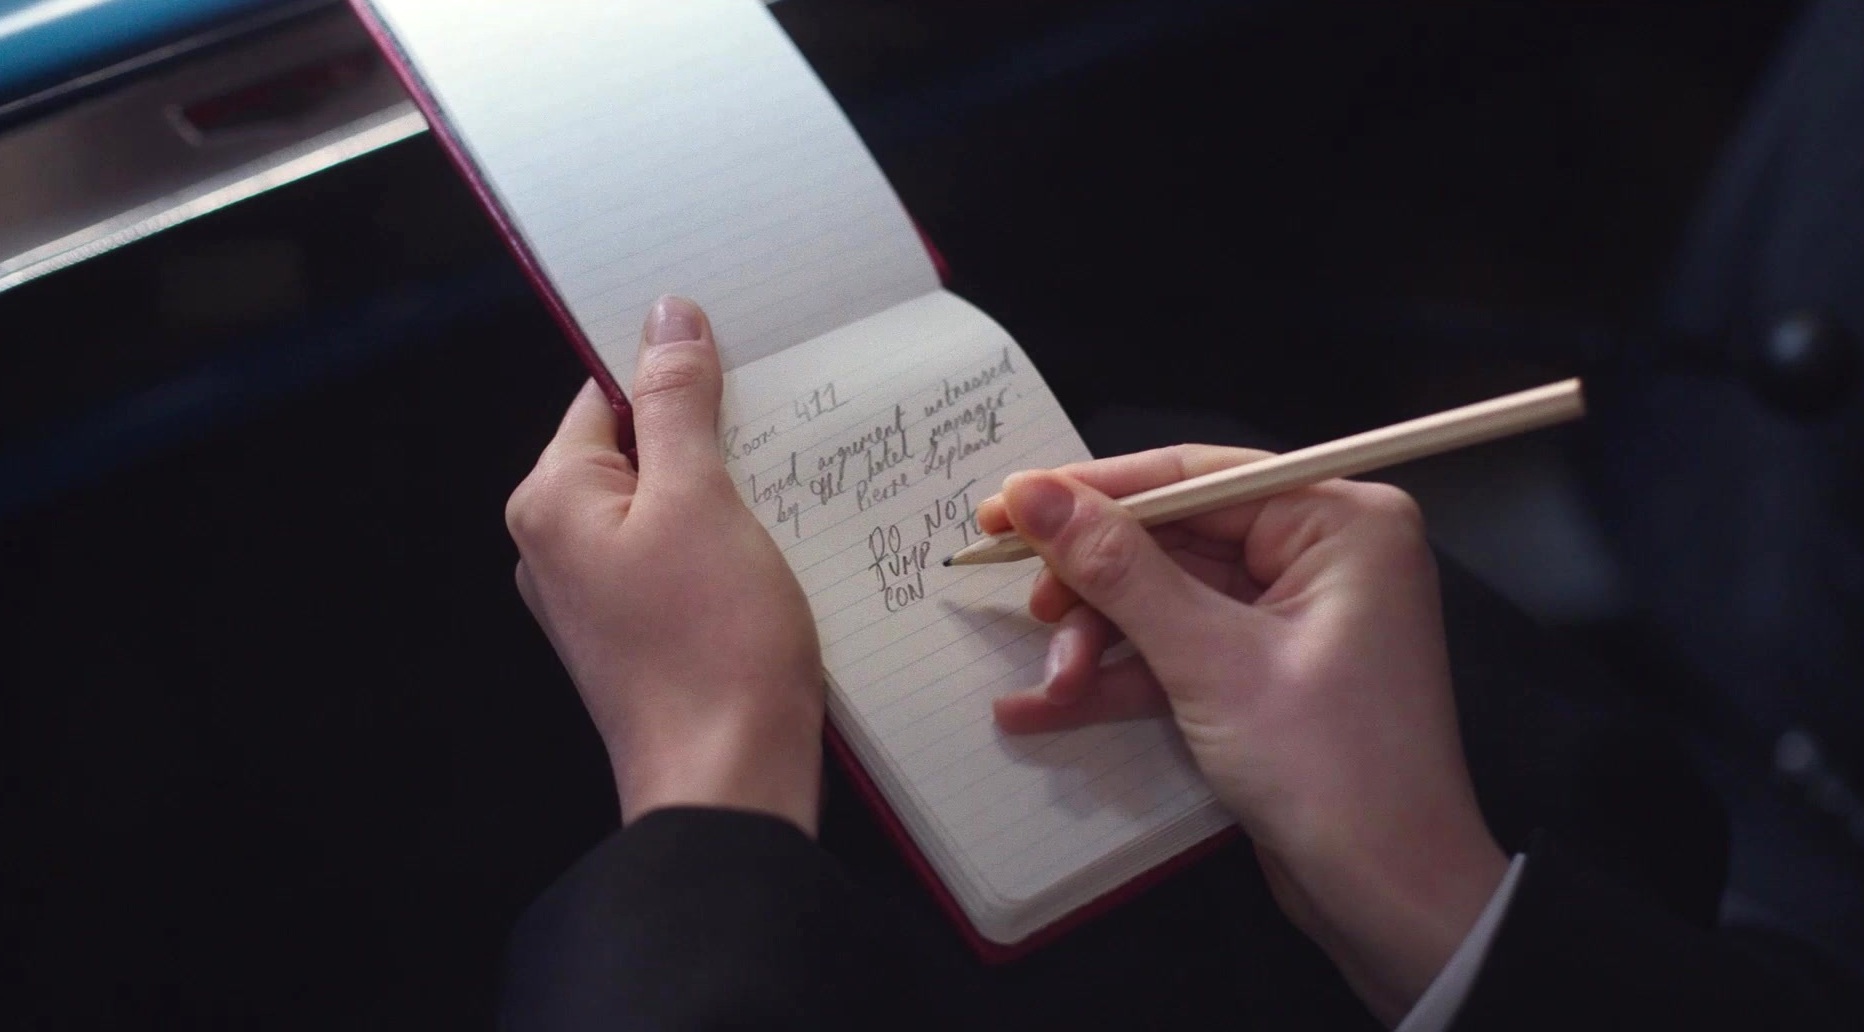 Room 411
Loud argument witnessed
by the hotel manager.
Pierre Leplant
DO NOT
JUMP TO
CON